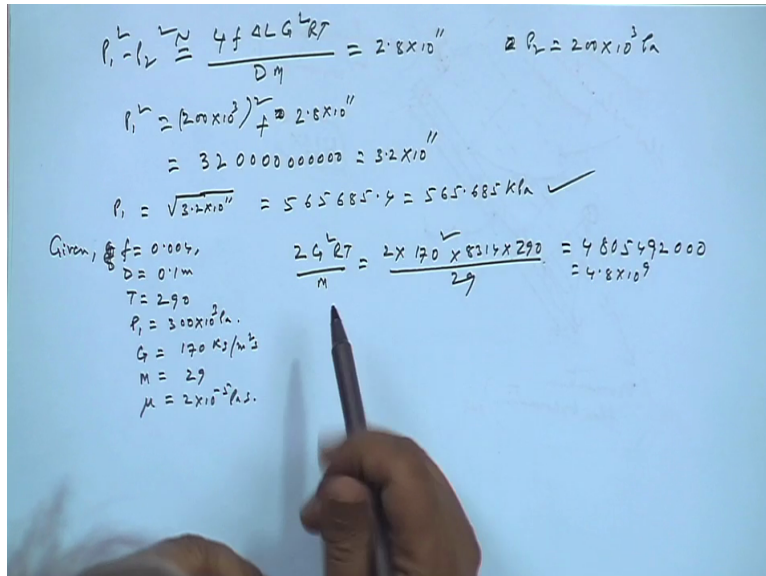 P₁² - P₂² ≅ 4 f ΔL G² RT / D M = 2.8×10¹¹ P₂ = 200×10³ Pa
P₁² = (200×10³)² + 2.8×10¹¹
= 320000000000 = 3.2×10¹¹
P₁ = √3.2×10¹¹ = 565685.4 = 565.685 kPa ✓
Given, f = 0.004,
D = 0.1m
T = 290
P₁ = 300×10³ Pa.
G = 170 Kg/m²s
M = 29
μ = 2×10⁻⁵ Pa s.
2 G² RT / M = 2 × 170² × 8314 × 290 / 29 = 4805492000
= 4.8×10⁹